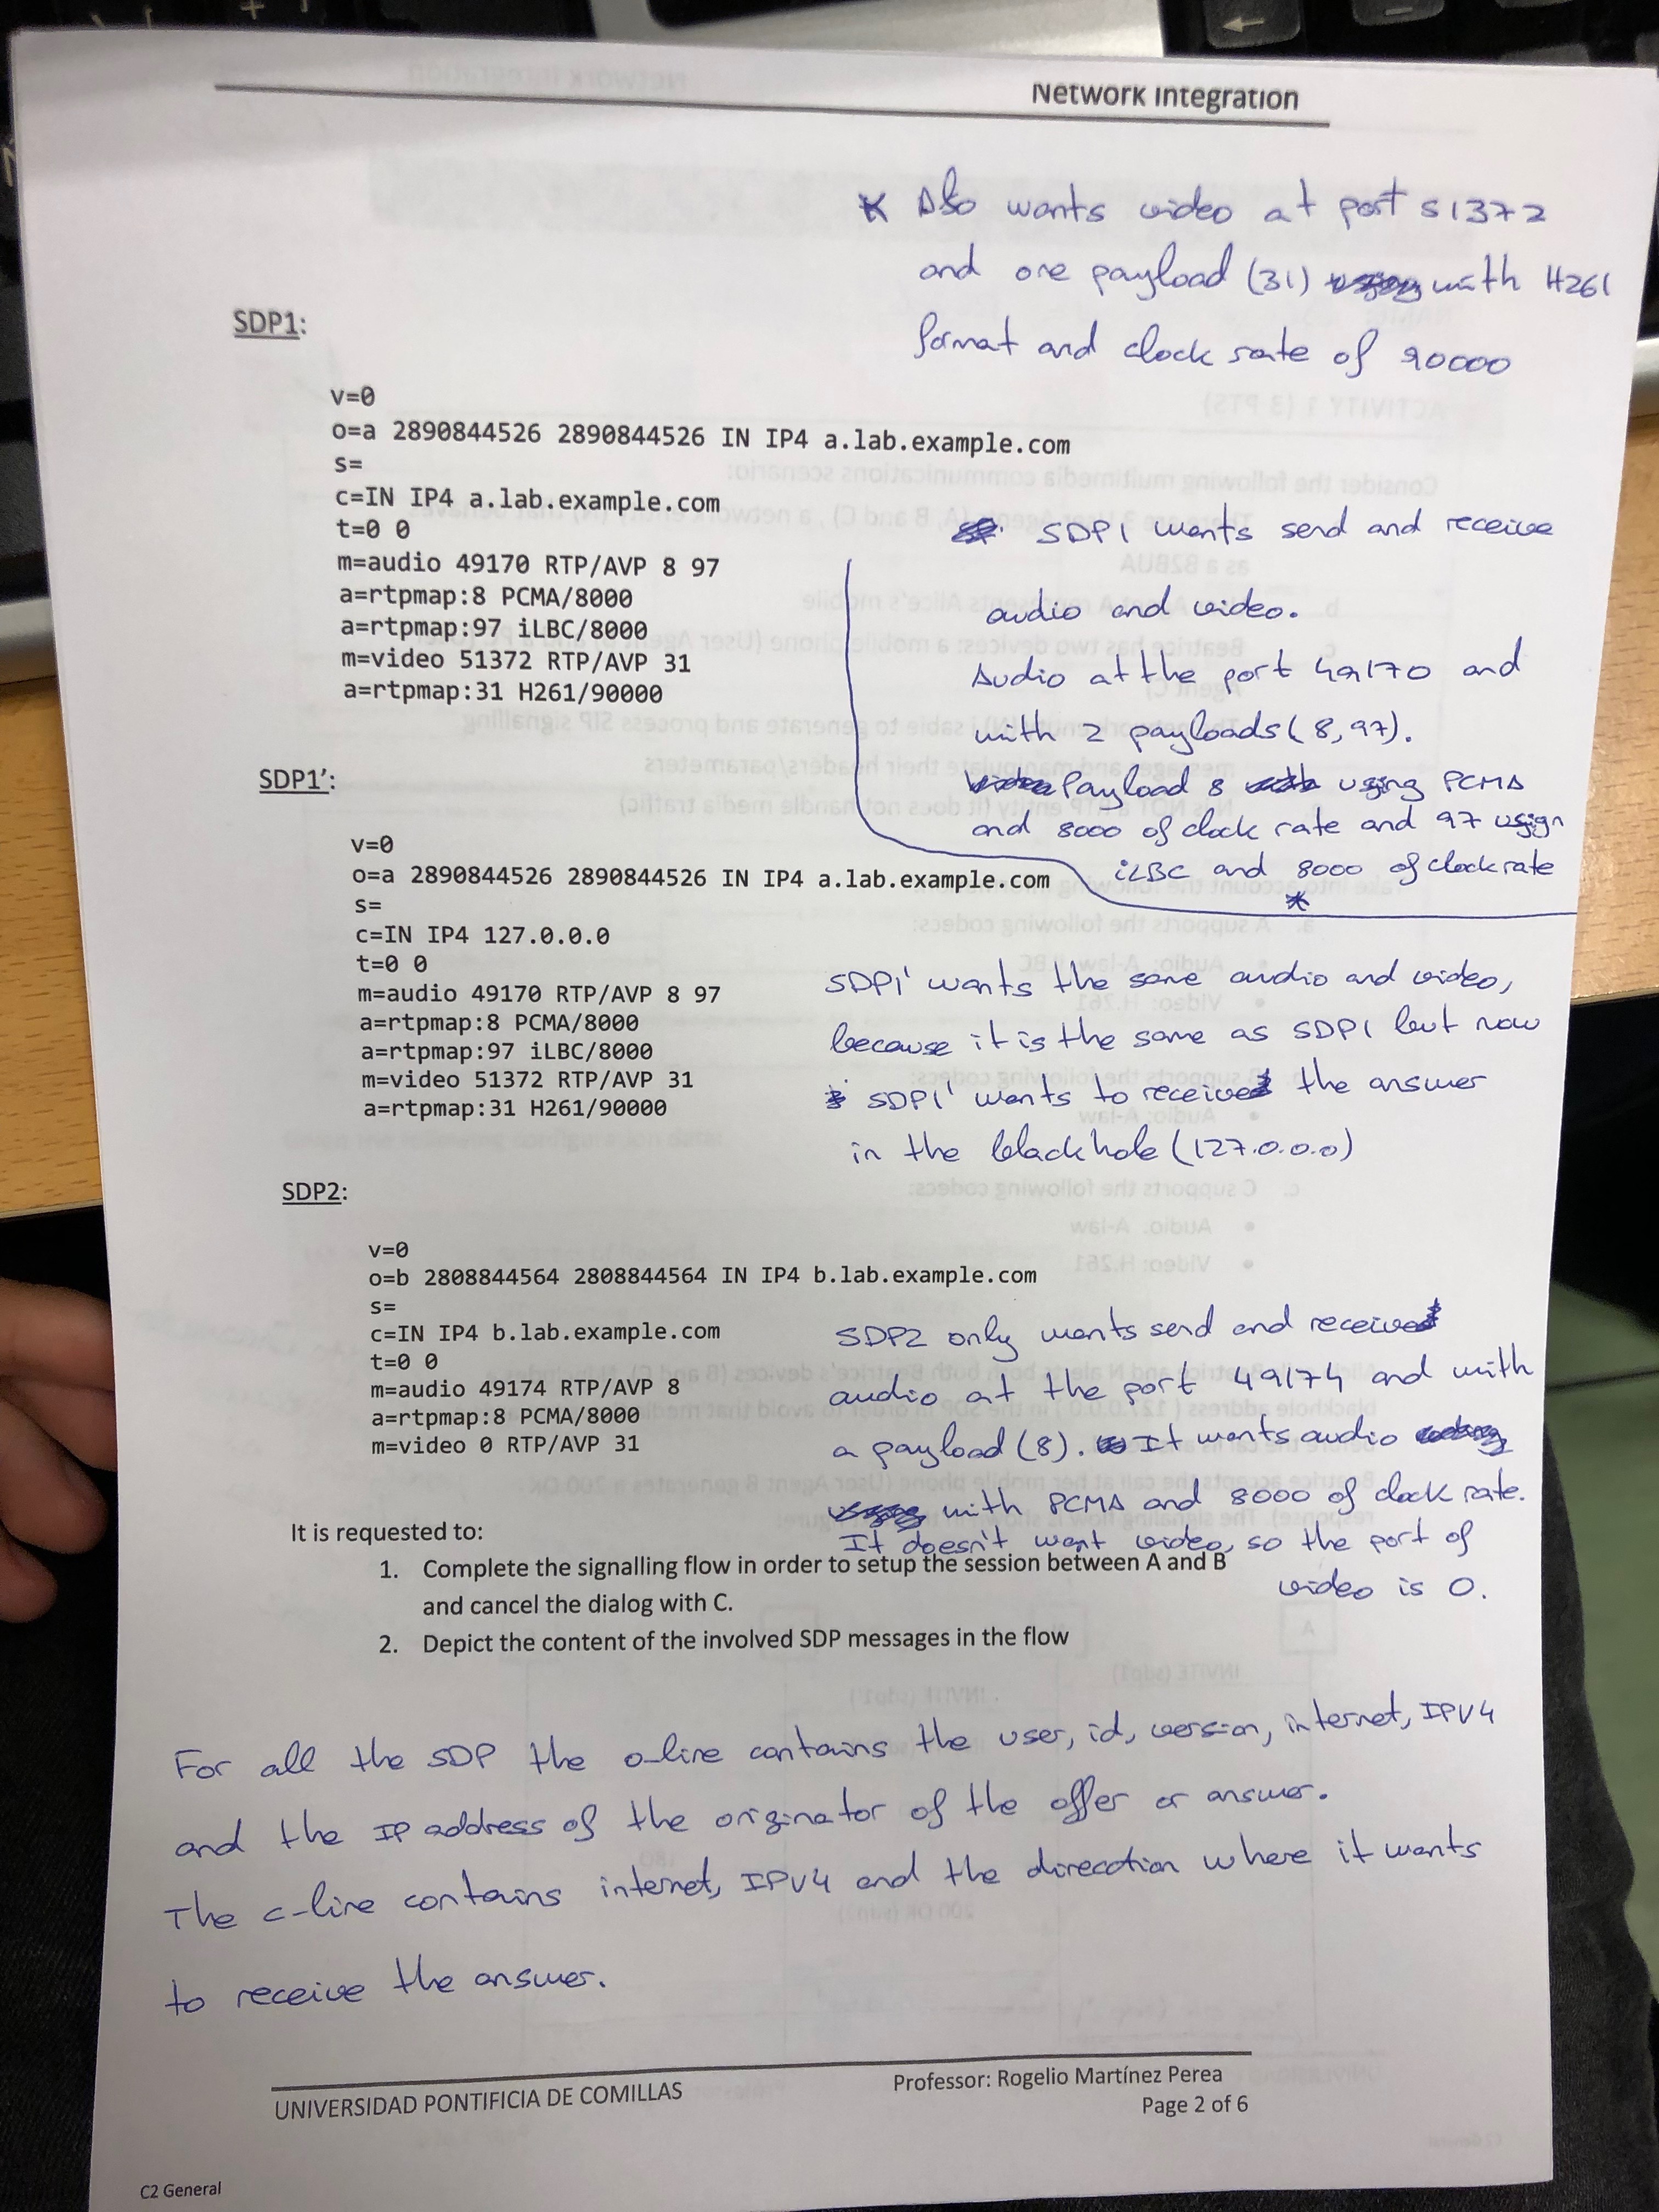 Network Integration
* Also wants video at port 51372
and one payload (31) with H261
format and clock rate of 90000
SDP1:
v=0
o=a 2890844526 2890844526 IN IP4 a.lab.example.com
s=
c=IN IP4 a.lab.example.com
t=0 0
m=audio 49170 RTP/AVP 8 97
a=rtpmap:8 PCMA/8000
a=rtpmap:97 iLBC/8000
m=video 51372 RTP/AVP 31
a=rtpmap:31 H261/90000
SDP1 wants send and receive
audio and video.
Audio at the port 49170 and
with 2 payloads (8,97).
Payload 8 using PCMA
and 8000 of clock rate and 97 usign
iLBC and 8000 of clock rate
*
SDP1':
v=0
o=a 2890844526 2890844526 IN IP4 a.lab.example.com
s=
c=IN IP4 127.0.0.0
t=0 0
m=audio 49170 RTP/AVP 8 97
a=rtpmap:8 PCMA/8000
a=rtpmap:97 iLBC/8000
m=video 51372 RTP/AVP 31
a=rtpmap:31 H261/90000
SDP1' wants the same audio and video,
because it is the same as SDP1 but now
SDP1' wants to receive the answer
in the blackhole (127.0.0.0)
SDP2:
v=0
o=b 2808844564 2808844564 IN IP4 b.lab.example.com
s=
c=IN IP4 b.lab.example.com
t=0 0
m=audio 49174 RTP/AVP 8
a=rtpmap:8 PCMA/8000
m=video 0 RTP/AVP 31
SDP2 only wants send and receive
audio at the port 49174 and with
a payload (8). It wants audio
with PCMA and 8000 of clock rate.
It doesn't want video, so the port of
video is 0.
It is requested to:
1. Complete the signalling flow in order to setup the session between A and B
and cancel the dialog with C.
2. Depict the content of the involved SDP messages in the flow
For all the SDP the o-line contains the user, id, version, internet, IPV4
and the IP address of the originator of the offer or answer.
The c-line contains internet, IPV4 and the direcction where it wants
to receive the answer.
UNIVERSIDAD PONTIFICIA DE COMILLAS
Professor: Rogelio Martínez Perea
Page 2 of 6
C2 General